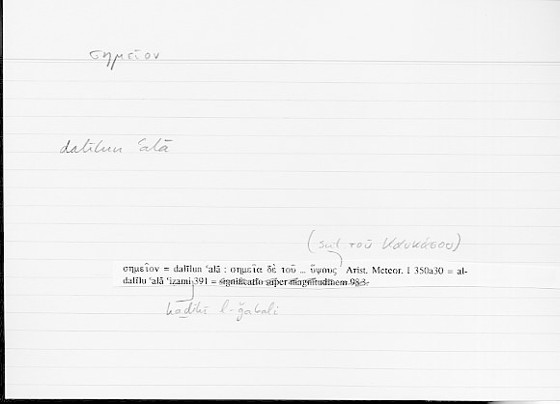 σημεῖον
dalīlun ʿalā
(scil. τοῦ Καυκάσου)
σημεῖον = dalīlun ʿalā : σημεῖα δὲ τοῦ ... ὕψους Arist. Meteor. I 350a30 = al-
dalīlu ʿalā ʿiẓami 391 = significatio super magnitudinem 98.3.
hāḏihī l-ǧabali